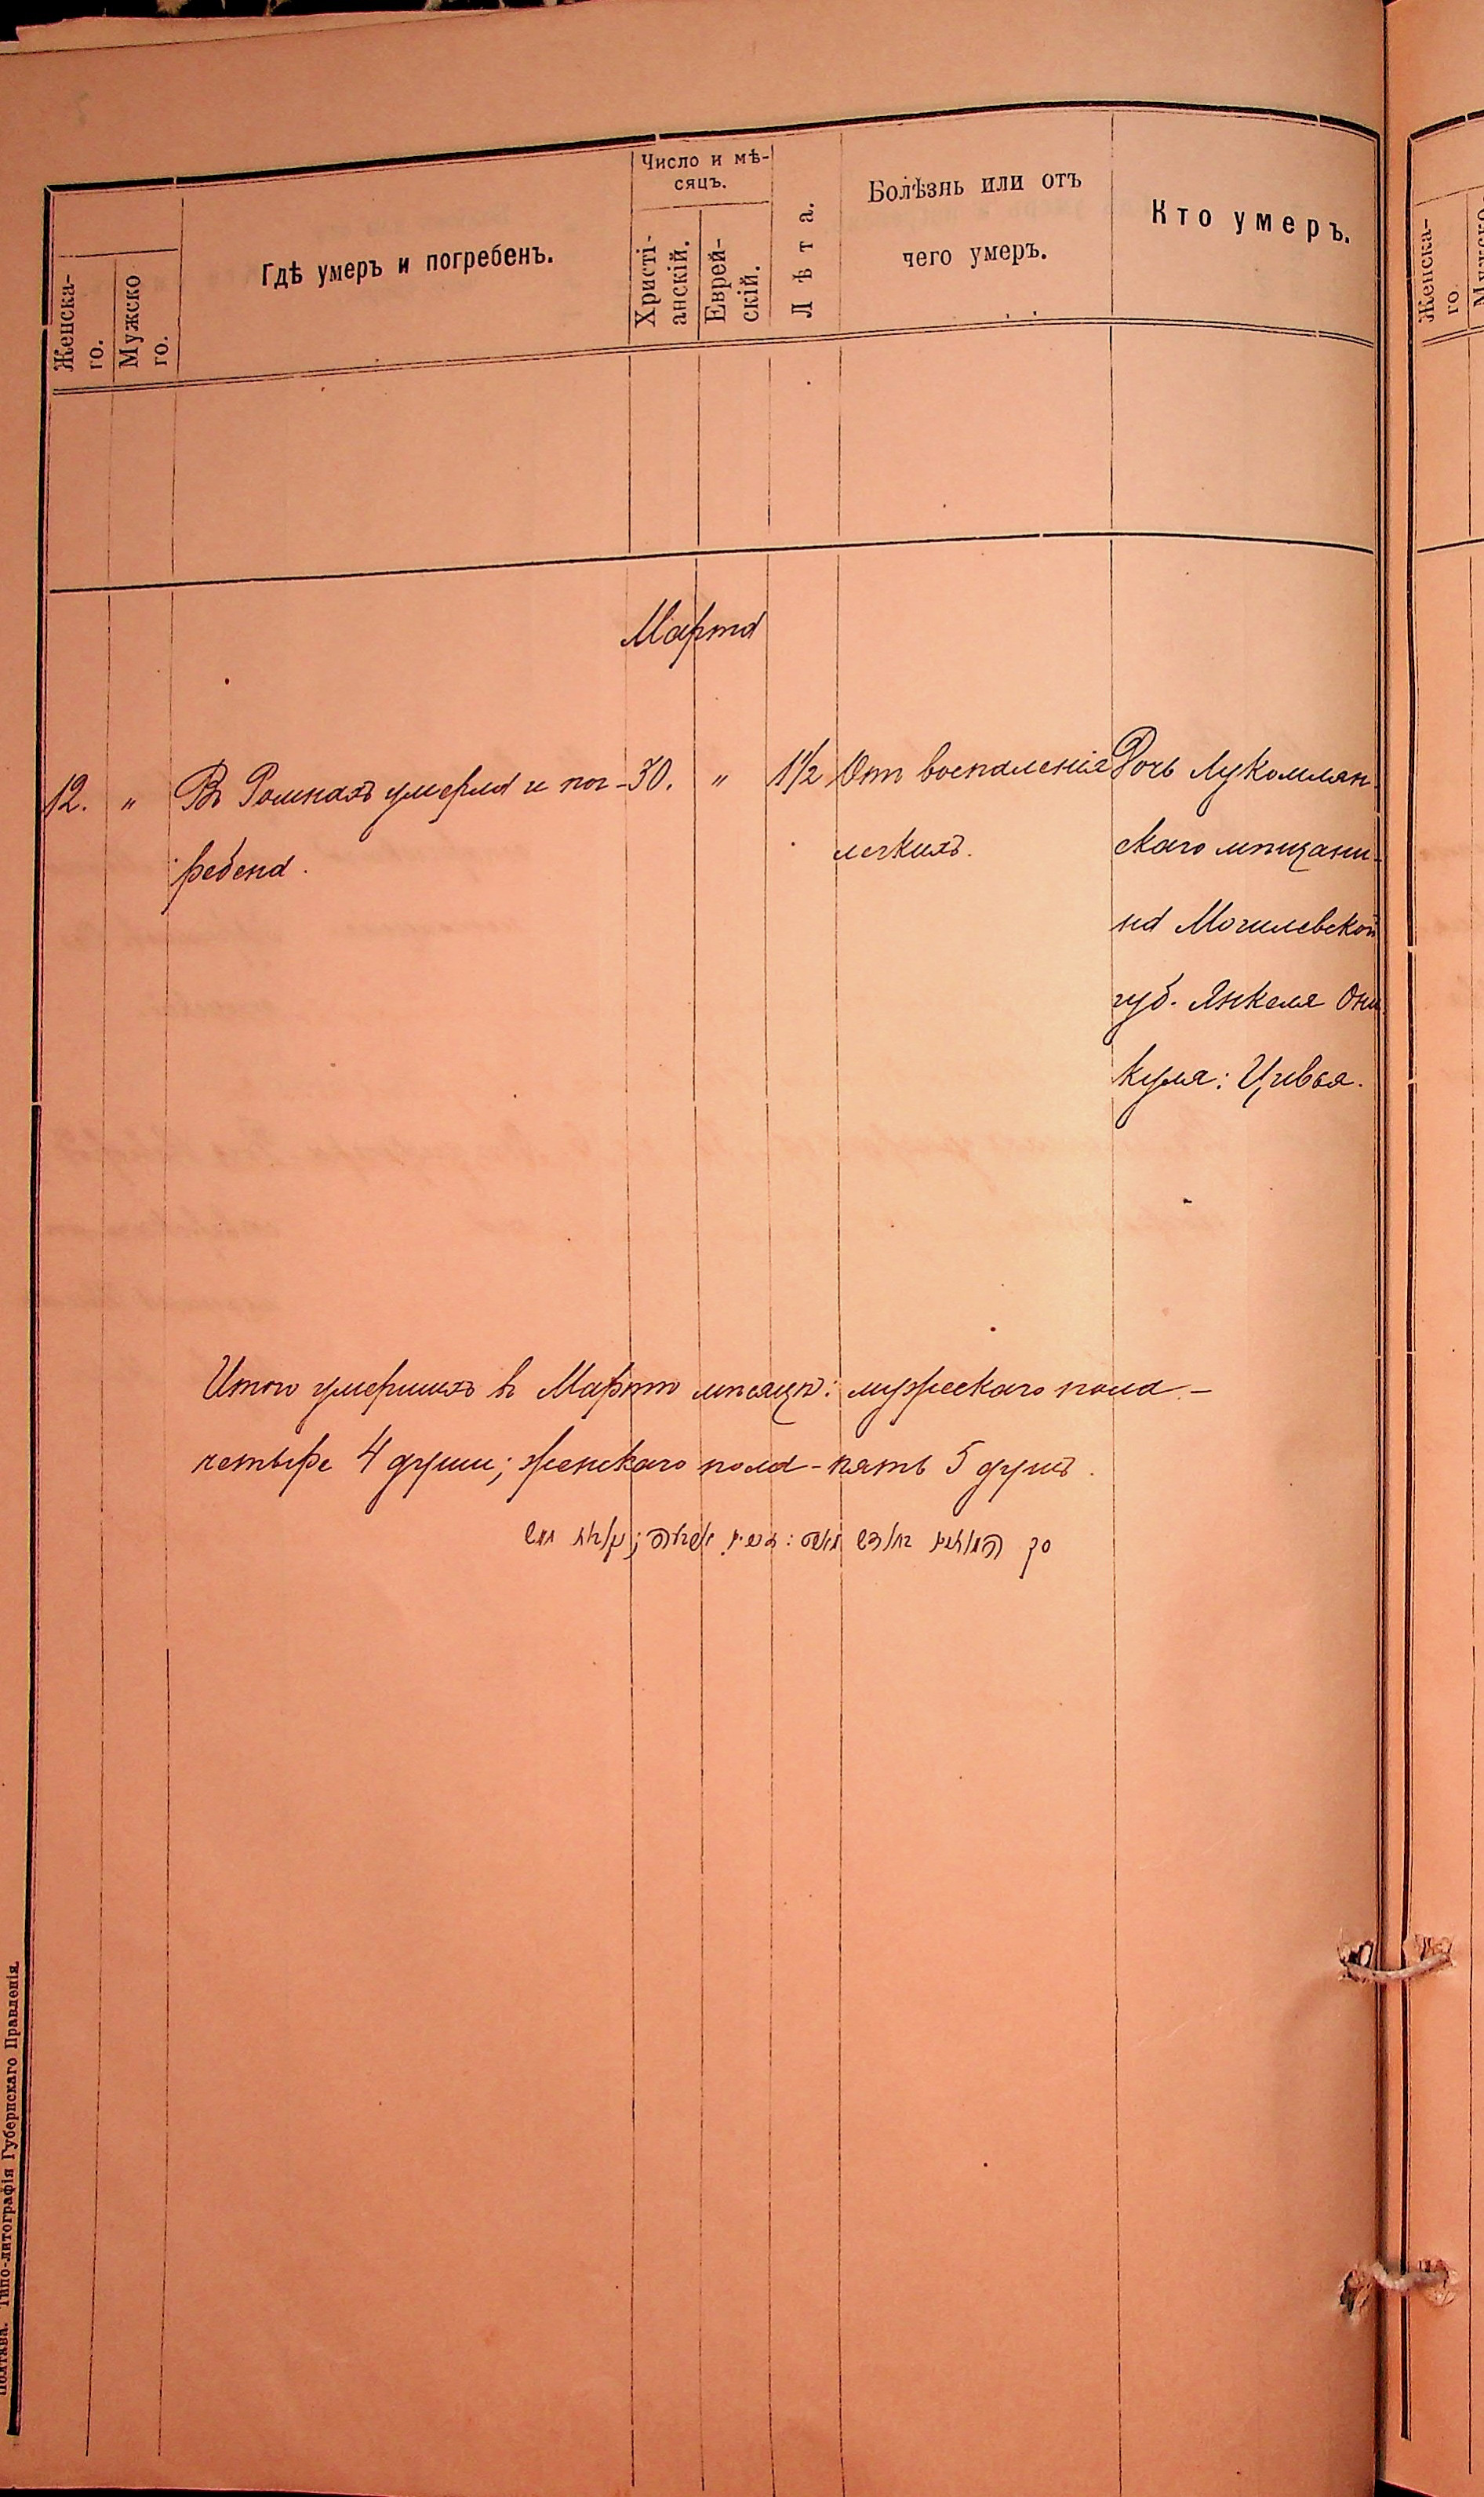 Женска-
го.
Мужско
го.
Гдѣ умеръ и погребенъ.
Число и мѣ-
сяцъ.
Христі-
анскій.
Еврей-
скій.
Лѣта.
Болѣзнь или отъ
чего умеръ.
Кто умеръ.
Марта
12. " Въ Ромнахъ умерла и пог- 30. " 1½ Отъ воспаленія Дочь Лукомлян-
ребена. легкихъ. скаго мѣщани-
на Могилевской
губ. Янкеля Они
куля: Цивья.
Итого умершихъ въ Мартѣ мѣсяцѣ: мужескаго пола -
четыре 4 души; женскаго пола - пять 5 душъ.
Полтава. Типо-литографія Губернскаго Правленія.
Женска-
го.